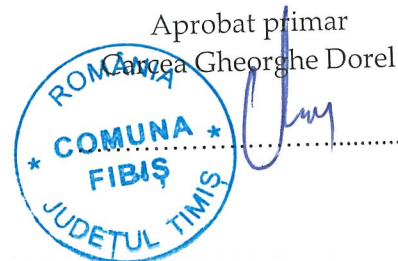 Aprobat primar
Carcea Gheorghe Dorel
ROMÂNIA
* COMUNA *
FIBIȘ
JUDEȚUL TIMIȘ